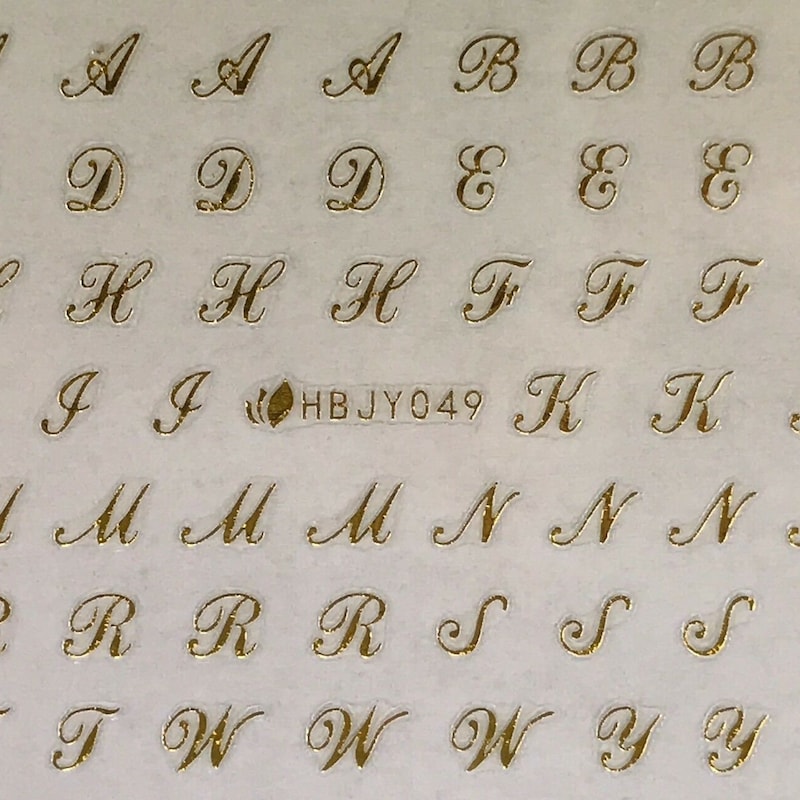 A A A B B B
D D D E E E
H H H F F F
I I HBJY049 K K
M M M N N N
R R R S S S
T W W W Y Y